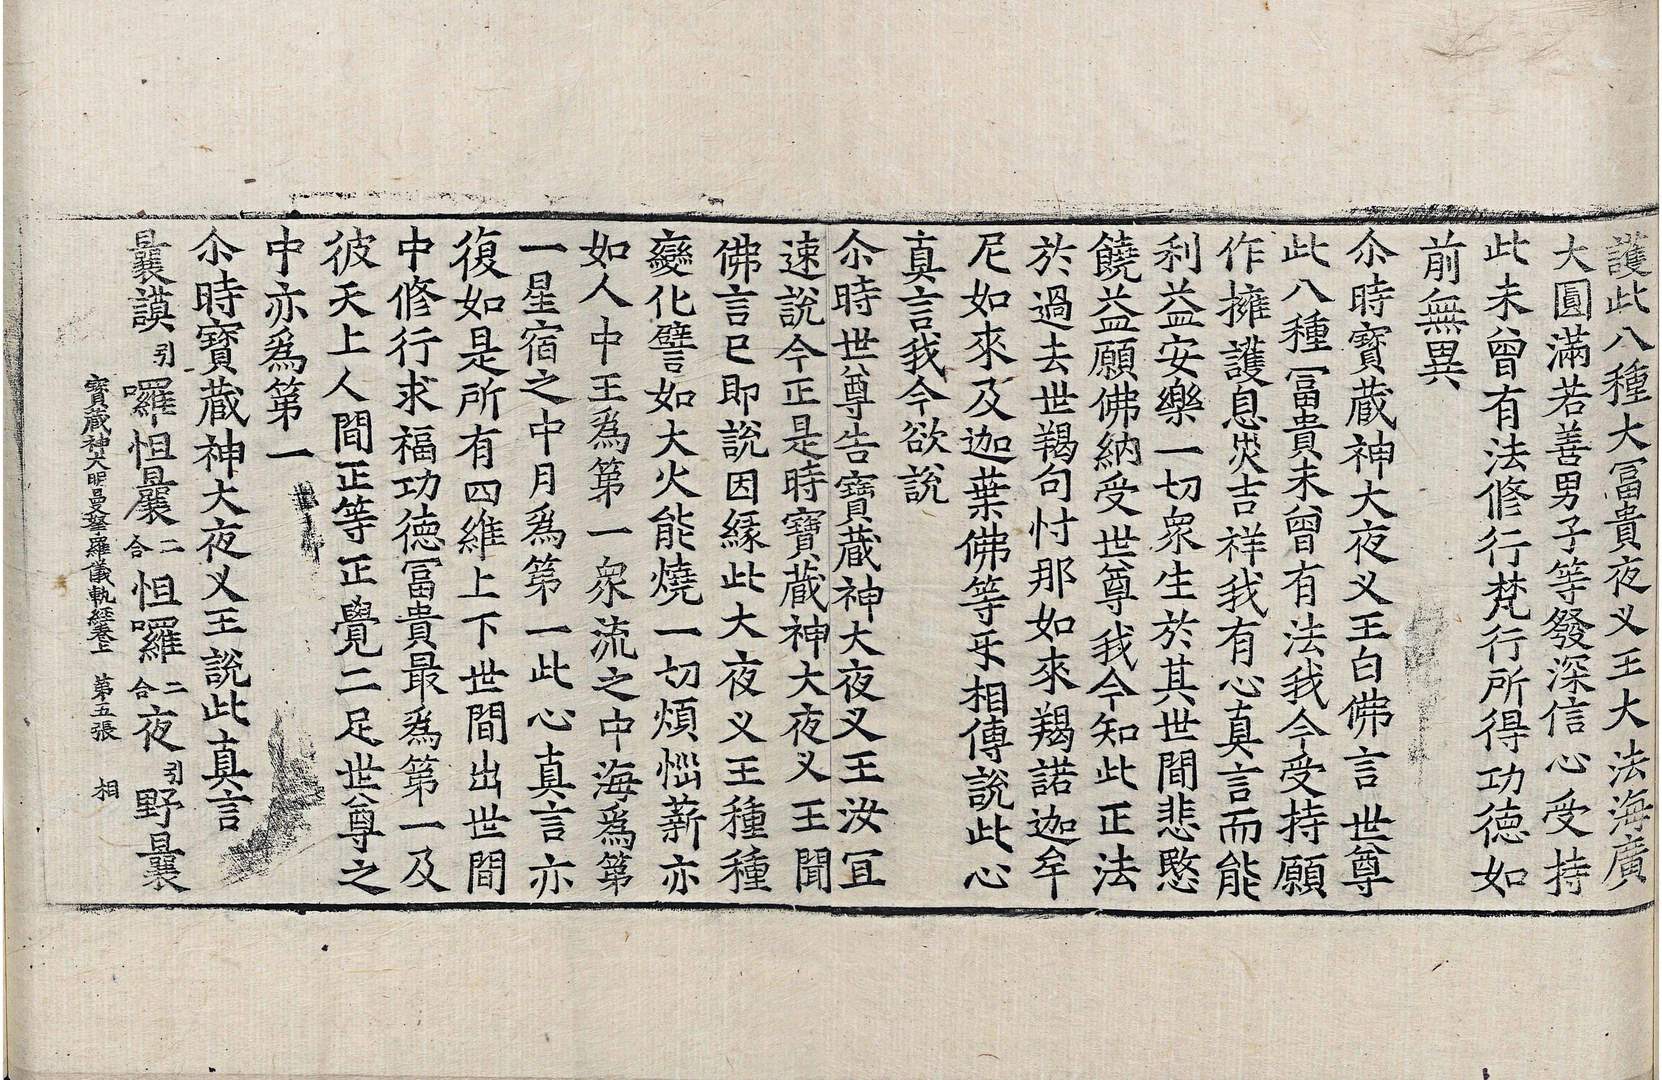 護此八種大冨貴夜乂王大法海廣
大圓滿若善男子等發深信心受持
此未曾有法修行梵行所得功德如
前無異
尒時寶蔵神大夜乂王白佛言世尊
此八種冨貴未曾有法我今受持願
作擁護息災吉祥我有心真言而能
利益安樂一切衆生於其世間悲愍
饒益願佛納受世尊我今知此正法
於過去世羯句忖那如來羯諾迦牟
尼如來及迦葉佛等𭃡相傳說此心
真言我今欲說
尒時世尊告寶蔵神大夜乂王汝宜
速說今正是時寶蔵神大夜乂王聞
佛言已即說因緣此大夜乂王種種
變化譬如大火能燒一切煩惱薪亦
如人中王爲第一衆流之中海爲第
一星宿之中月爲第一此心真言亦
復如是所有四維上下世間出世間
中修行求福功德冨貴最爲第一及
彼天上人間正等正覺二足世尊之
中亦爲第一
尒時寶蔵神大夜乂王說此真言
曩謨引囉怛曩二合怛囉二合夜引野曩
寶蔵神大明曼拏羅儀軌經卷上 第五張 相